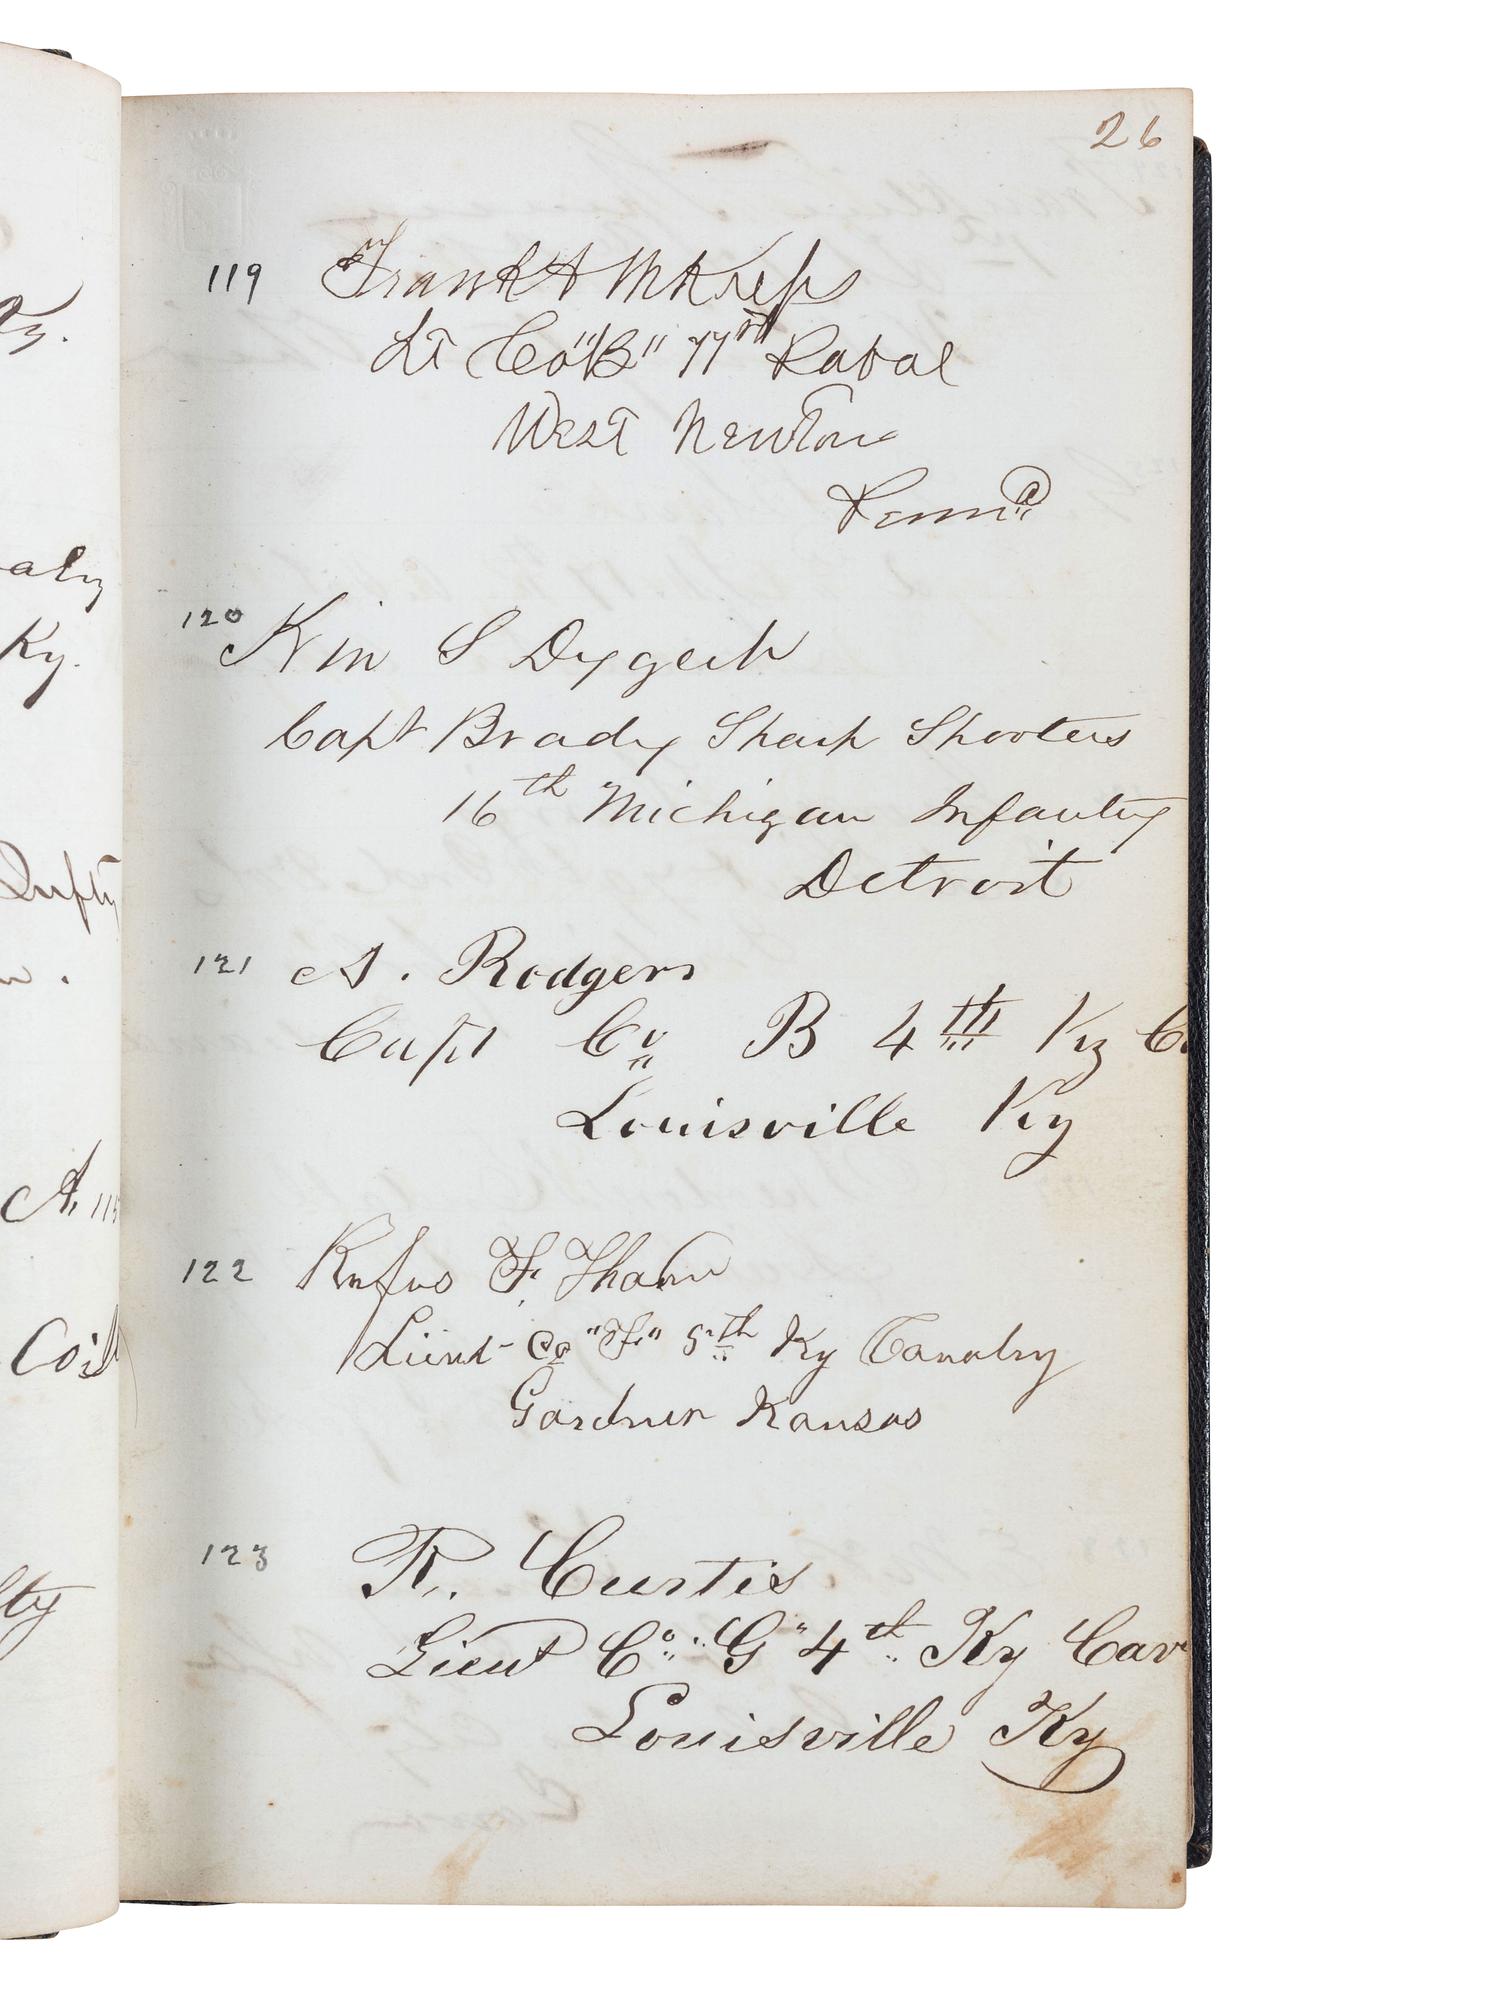 26
119 Frank A M Kreps
Lt Co "B" 77rd Pa Vol
West Newton
Penn a
120 Kin S Dygert
Capt Brady Sharp Shooters
16th Michigan Infantry
Detroit
121 A. Rodgers
Capt Co B 4th Ky C
Louisville Ky
122 Rufus F. Tharn
Lieut Co "F" 5th Ky Cavalry
Gardner Kansas
123 R. Curtis
Lieut Co "G" 4th Ky Cav
Louisville Ky
aly
Ky.
A, 115